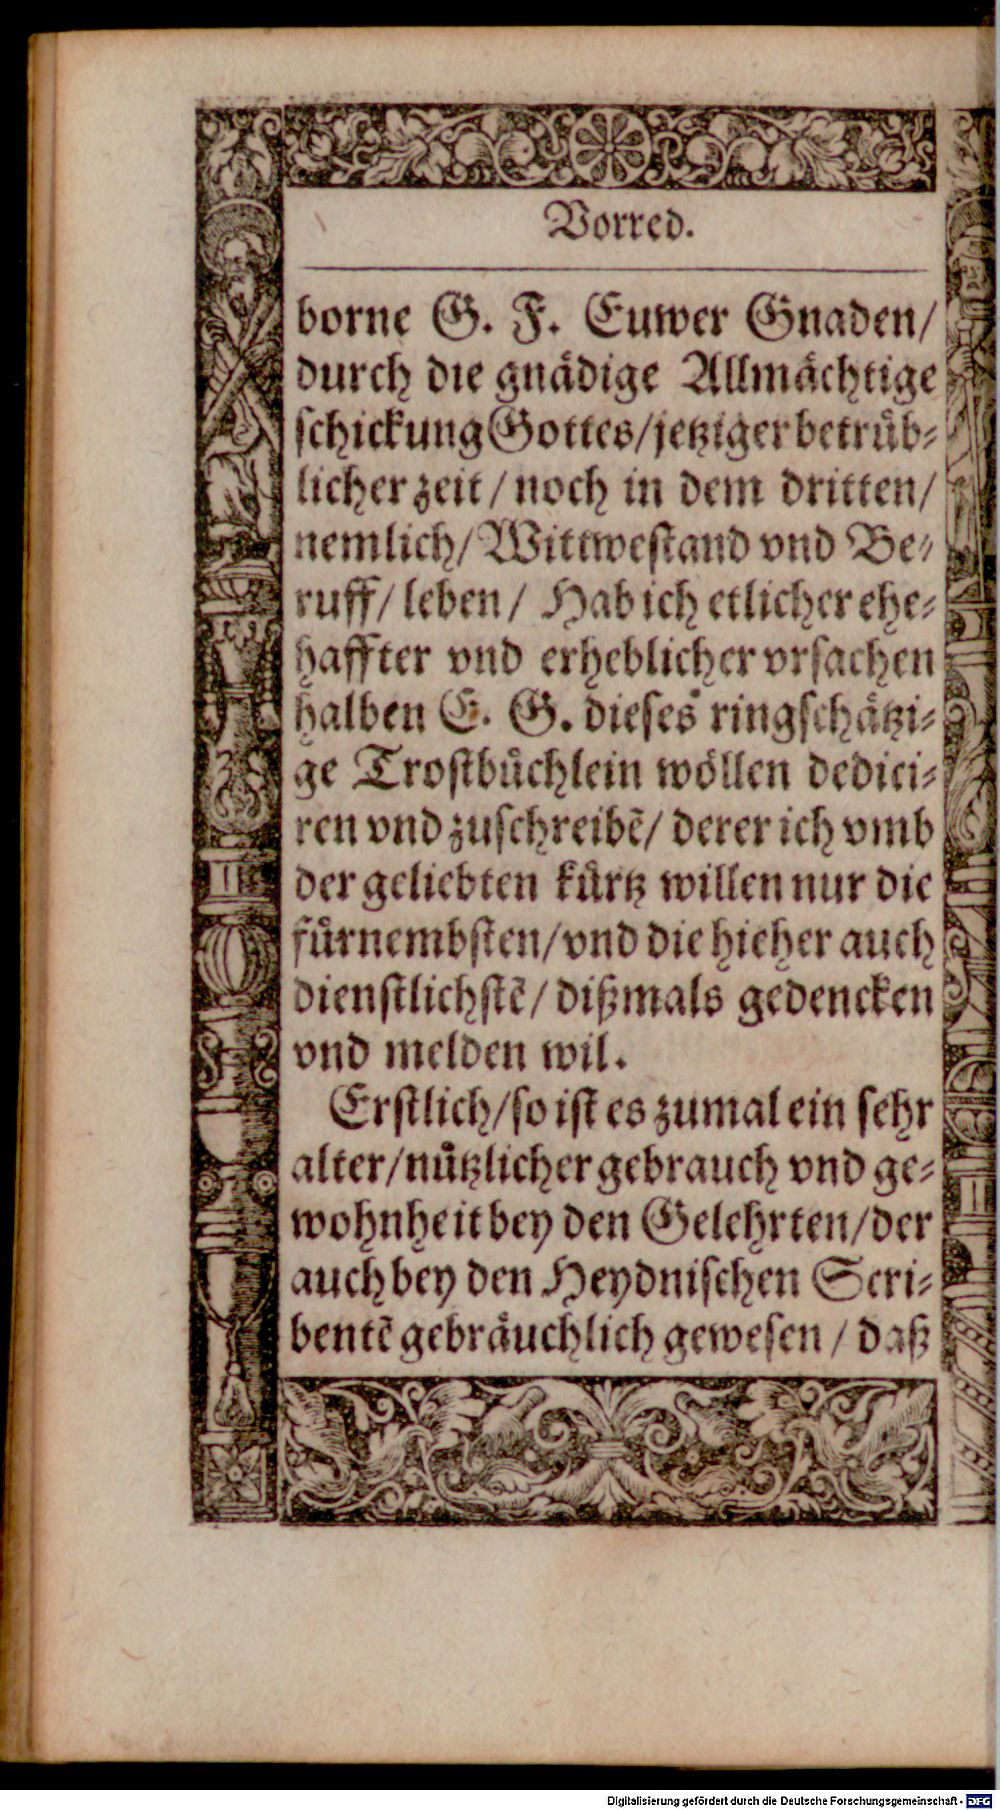 Vorred.
borne G. F. Euwer Gnaden/
durch die gnådige Allmåchtige
schickung Gottes/jetziger betrůb⸗
licher zeit/noch in dem dritten/
nemlich/Wittwestand vnd Be⸗
ruff/leben/ Hab ich etlicher ehe⸗
haffter vnd erheblicher vrsachen
halben E. G. dieses ringschåtzi⸗
ge Trostbůchlein wőllen dedici⸗
ren vnd zuschreibē/ derer ich vmb
der geliebten kůrtz willen nur die
fůrnembsten/vnd die hieher auch
dienstlichstē/dißmals gedencken
vnd melden wil.
Erstlich/so ist es zumal ein sehr
alter/nůtzlicher gebrauch vnd ge⸗
wohnheit bey den Gelehrten/der
auch bey den Heydnischen Scri⸗
bentē gebråuchlich gewesen/daß
Digitalisierung gefördert durch die Deutsche Forschungsgemeinschaft - DFG